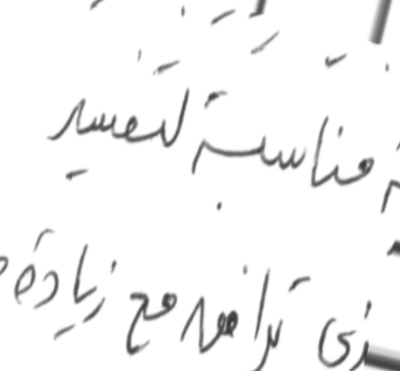 مناسبة لتفسير
ذي ترافق مع زيادة